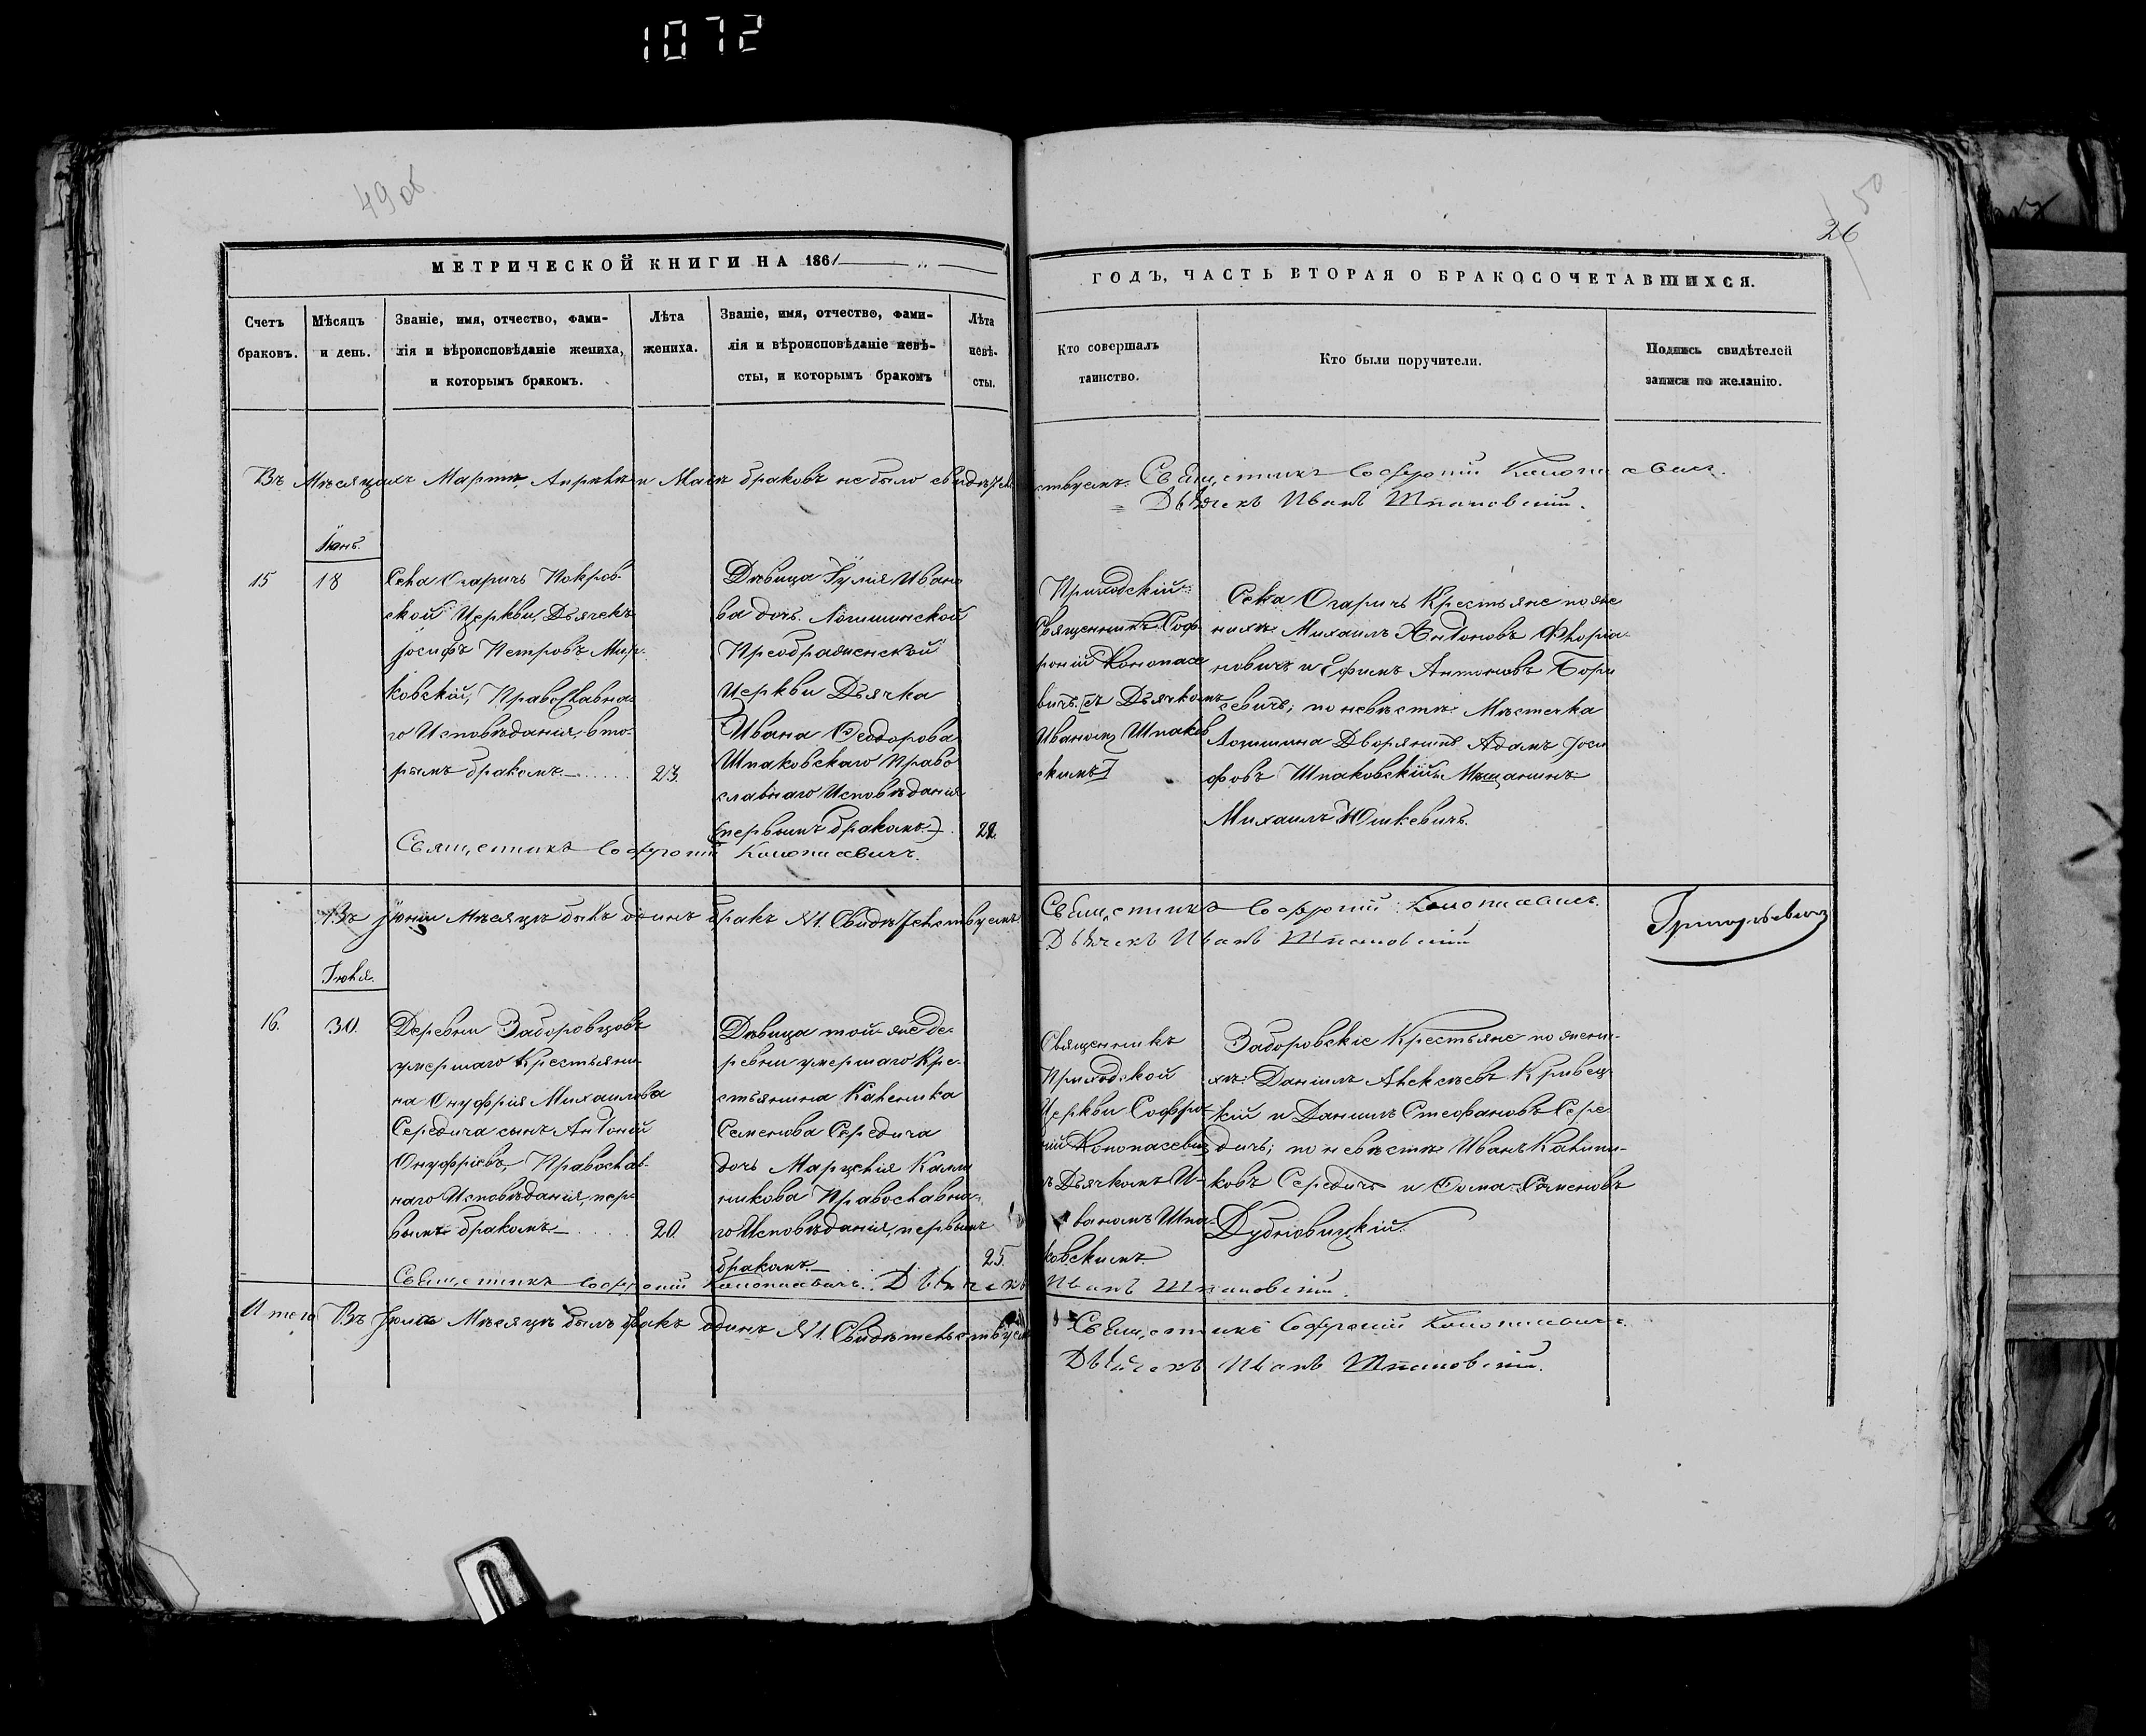 1072
49 об.
50
26
МЕТРИЧЕСКОЙ КНИГИ НА 1861
ГОДЪ, ЧАСТЬ ВТОРАЯ О БРАКОСОЧЕТАВШИХСЯ.
Счетъ
браковъ.
Мѣсяцъ
и день.
Званіе, имя, отчество, фами-
лія и вѣроисповѣданіе жениха,
и которымъ бракомъ.
Лѣта
жениха.
Званіе, имя, отчество, фами-
лія и вѣроисповѣданіе невѣ-
сты, и которымъ бракомъ
Лѣта
невѣ-
сты.
Кто совершалъ
таинство.
Кто были поручители.
Подпись свидѣтелей
записи по желанію.
Въ Мѣсяцахъ Мартѣ, Апрѣлѣ и Маѣ браковъ не было свидѣтель
ствуемъ. Священникъ Софроній Конопасевичъ.
Дьячекъ Иванъ Шпаковскій.
Іюнь.
15
18
Села Огаричъ Покров-
ской Церкви, Дьячекъ
Іосифъ Петровъ Мир-
ковскій, Православна-
го Исповѣданія, вто-
рымъ бракомъ
23.
Дѣвица Іулія Ивано
ва дочь Логишинской
Преображенской
Церкви Дьячка
Ивана Ѳеодорова
Шпаковскаго Право
славнаго Исповѣданія
(первымъ бракомъ)
22.
Приходскій
Священникъ Соф-
роній Конопасе
вичъ съ Дьячкомъ
Иваномъ Шпаков
скимъ
Села Огаричъ Крестьяне по же
нихѣ Михаилъ Антоновъ Флоріа-
новичъ и Ефимъ Антоновъ Бори
севичъ; по невѣстѣ Мѣстечка
Логишина Дворянинъ Адамъ Іоси
фовъ Шпаковскій и Мѣщанинъ
Михаилъ Юшкевичъ.
Священникъ Софроній Конопасевичъ.
Въ Іюнѣ Мѣсяцѣ былъ одинъ бракъ №1. Свидѣтельствуемъ
Священникъ Софроній Конопасевичъ.
Дьячекъ Иванъ Шпаковскій
Григорьевичъ
Іюля.
16.
30.
Деревни Заборовцовъ
умершаго Крестьяни-
на Онуфрія Михаилова
Середича сынъ Антоній
Онуфріевъ, Православ-
наго Исповѣданія, пер-
вымъ бракомъ
20
Дѣвица той же де-
ревни умершаго Кре-
стьянина Калиника
Семенова Середича
дочь Марцелія Кали
никова Православна-
го Исповѣданія, первымъ
бракомъ.
25.
Священникъ
Приходской
Церкви Софро-
ній Конопасевичъ
съ Дьячкомъ И-
ваномъ Шпа-
ковскимъ
Заборовскіе Крестьяне по жени-
хѣ: Даніилъ Алексѣевъ Кривец-
кій и Даніилъ Стефановъ Сере
дичъ; по невѣстѣ Иванъ Калини-
ковъ Середичъ и Ѳома Семеновъ
Дубновицкій.
Священникъ Софроній Конопасевичъ. Дьячекъ
Иванъ Шпаковскій.
Итого Въ Іюлѣ Мѣсяцѣ былъ бракъ одинъ №1. Свидѣтельствуемъ
Священникъ Софроній Конопасевичъ.
Дьячекъ Иванъ Шпаковскій.